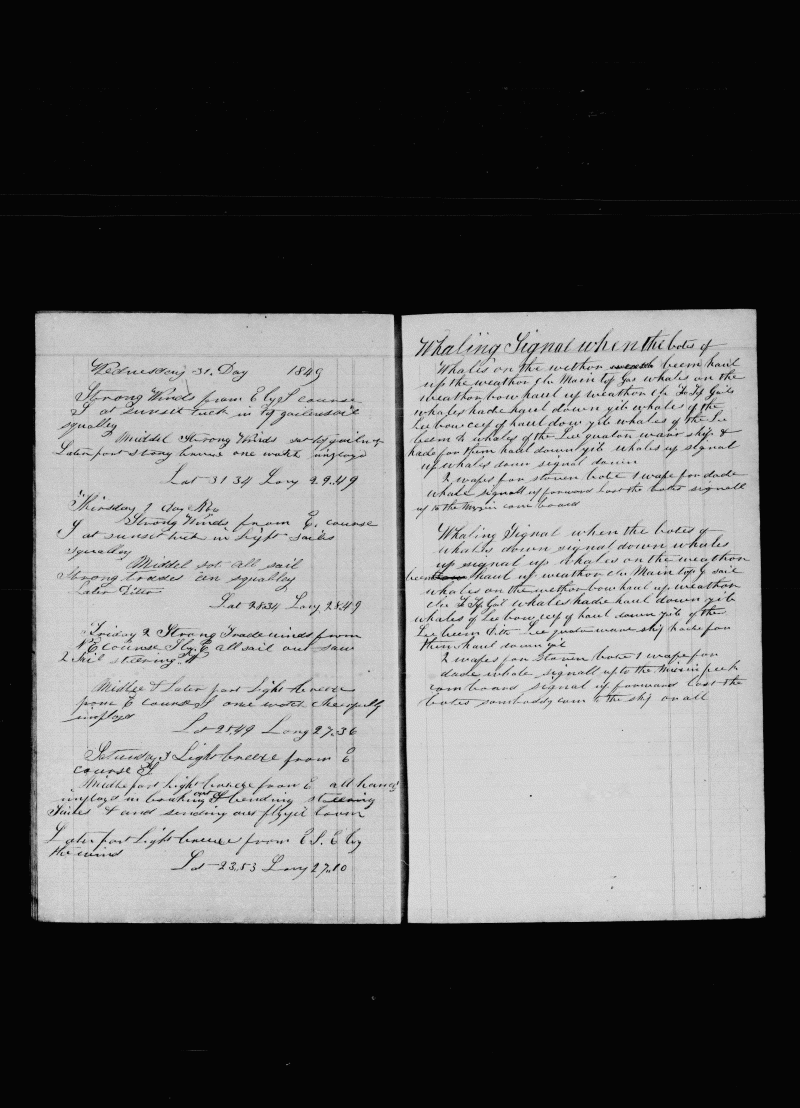 Wednesday 31 Day 1849
Strong Winds from E by S course
S at sunset tuck in
squalley
Middel Strong Winds
Later part strong breeze one watch imployd
Lat 31 34 Long 29.49
Thirsday 1 day Nov
Strong Winds from E. course
S at sunset tuck in light sailes
squalley
Middel sot all sail
Strong trades an squalley
Later Ditto
Lat 28.34 Long 28.49
Friday 2 Strong Trade winds from
E course S by E all sail out saw
2 Sail steering W
Midlee & Later part Light breeze
from E course S one watch
imployd
Lat 25.49 Long 27.36
Saturday 3 Light breeze from E
course S
Midle part light breeze from E all hands
imployd in braking out & bending
Sailes & and sending out flyjib boom
Later part Light breeze from E S. E by
the wind
Lat 23.53 Long 27.10
Whaling Signal when the botes of
Whales on the wethor beem haul
up the weathor clu Main top Gas whales on the
weathor bow haul up weathor clu
whales hade haul down gib whales of the
Lee bow of haul dow gib whales of the Lee
beem & whales of the Lee quarton ware ship &
hade for them haul down gib whales up signal
up whales down signal down
2 wafes for stoven bote 1 wafe for dade
whale signall up forward Lost the botes signall
up to the come board
Whaling Signal when the botes of
whales down signal down whales
up signal up whales on the weathor
beem haul up weathor clu Main top G sail
whales on the wethor bow haul up weathor
clu whales hade haul down gib
whales of Lee bow of haul down gib of the
Lee beem Lee quaton ware ship hade for
them haul down gib
2 wafes for stoven bote 1 wafe for
dade whale signall up to the peek
com board signal up forward Lost the
botes com to the ship or all